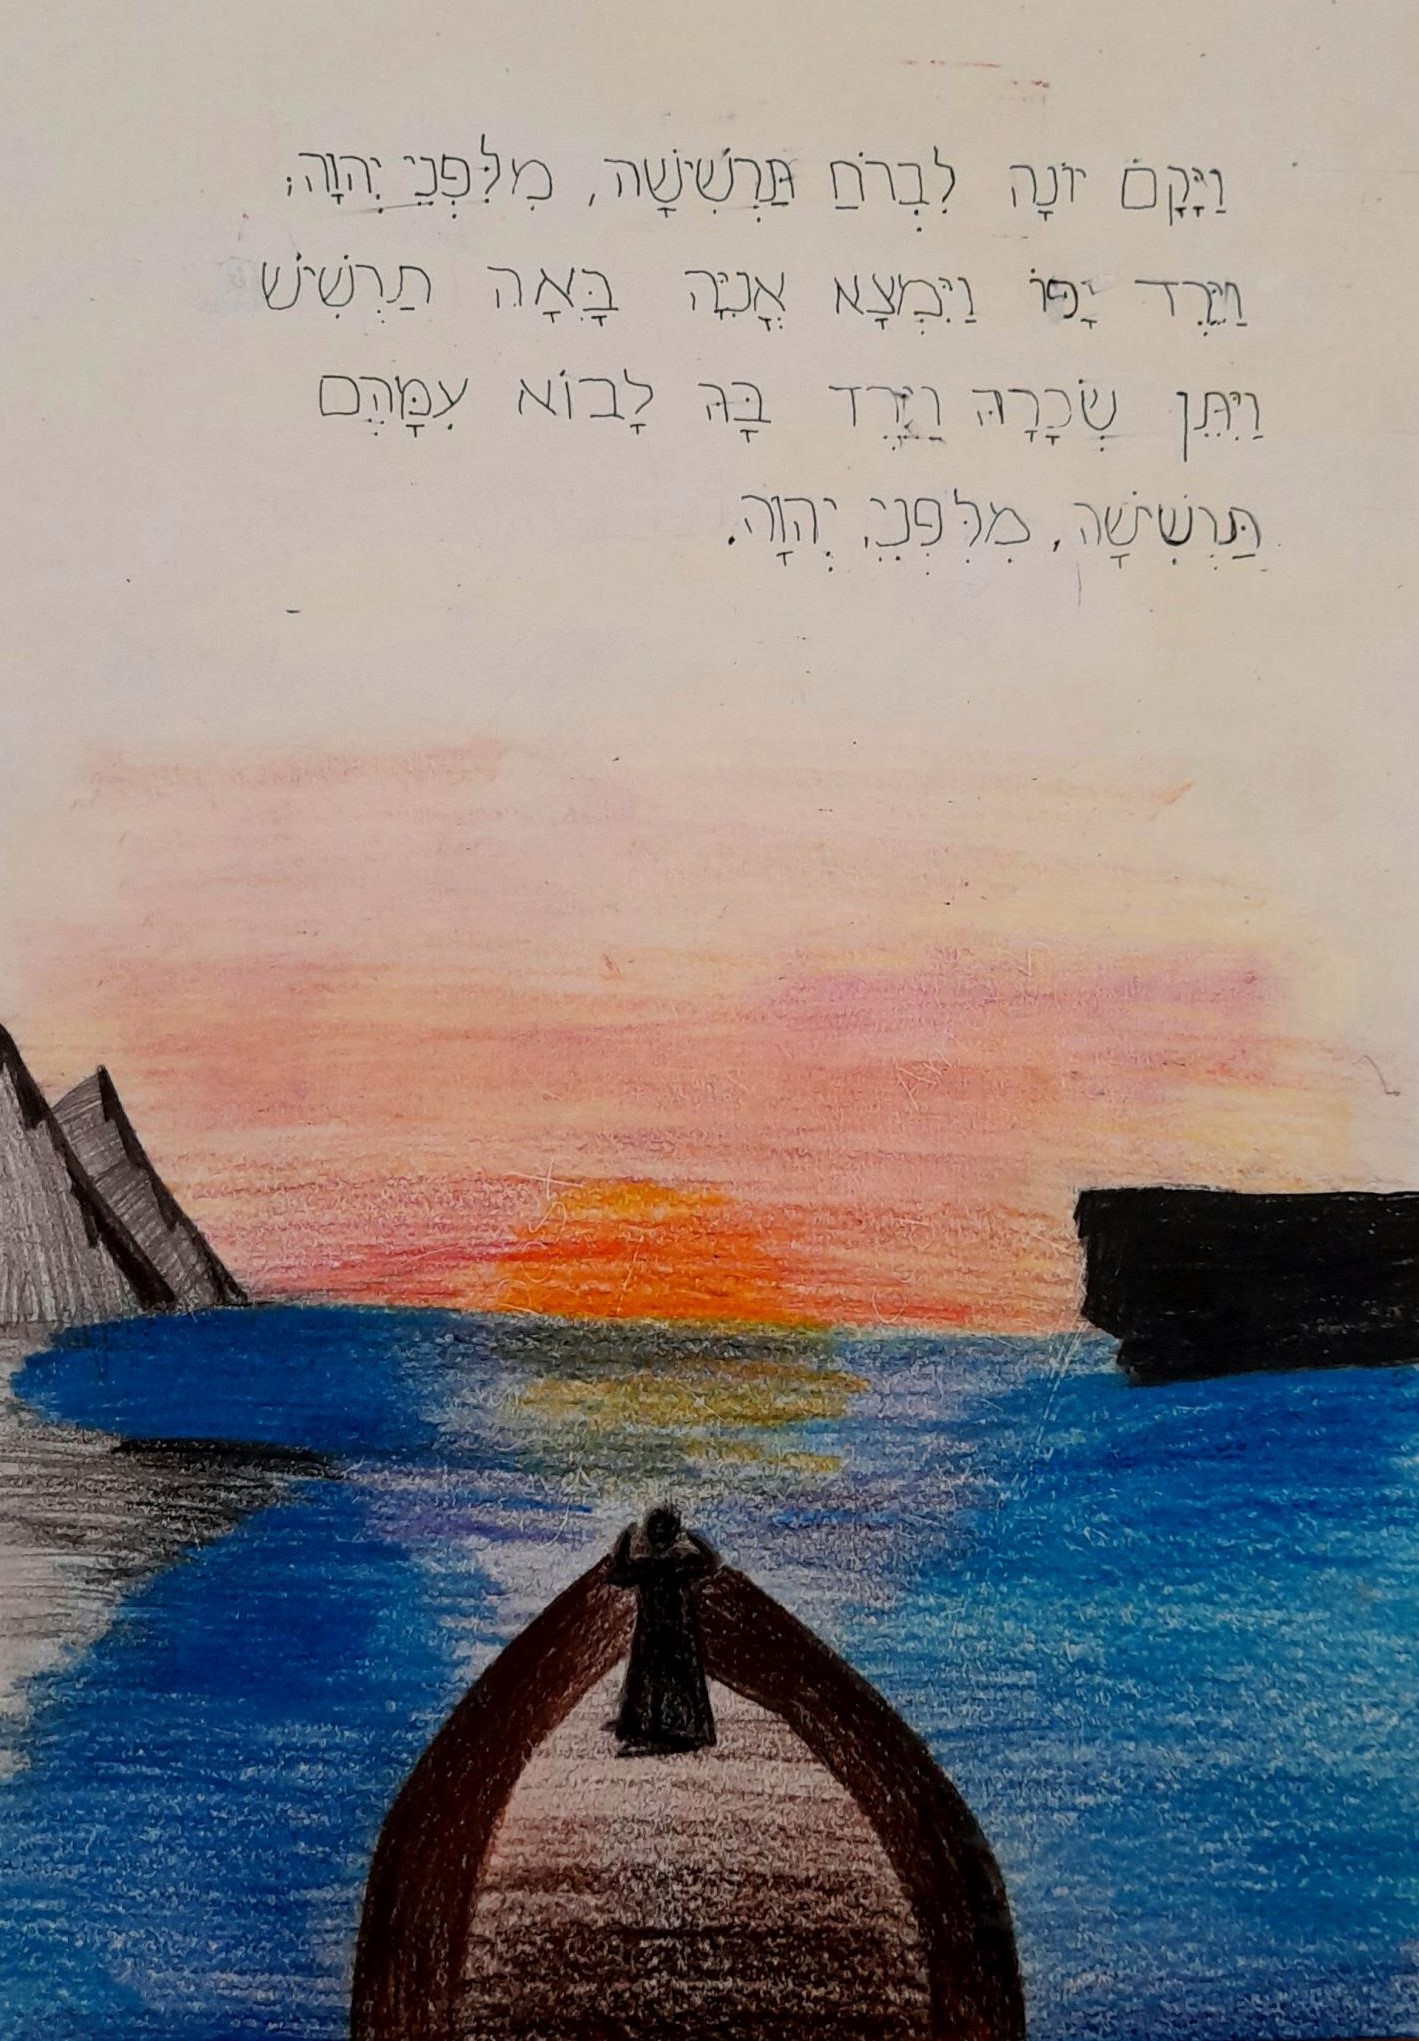 וַיָּקָם יוֹנָה לִבְרֹחַ תַּרְשִׁישָׁה, מִלִּפְנֵי יְהוָה;
וַיֵּרֶד יָפוֹ וַיִּמְצָא אֳנִיָּה בָּאָה תַרְשִׁישׁ
וַיִּתֵּן שְׂכָרָהּ וַיֵּרֶד בָּהּ לָבוֹא עִמָּהֶם
תַּרְשִׁישָׁה, מִלִּפְנֵי, יְהוָה.